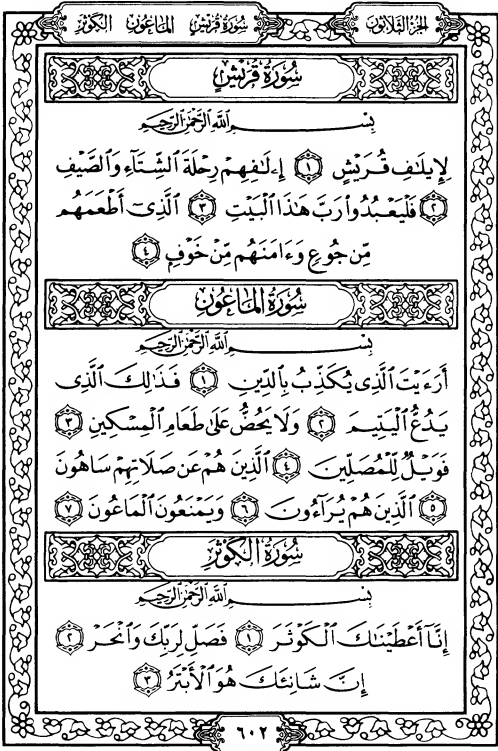 الجزء الثلاثون سورة قريش الماعون الكوثر
سُورَةُ قُرَيْشٍ
بِسْمِ اللَّهِ الرَّحْمَٰنِ الرَّحِيمِ
لِإِيلَٰفِ قُرَيْشٍ ١ إِۦلَٰفِهِمْ رِحْلَةَ ٱلشِّتَآءِ وَٱلصَّيْفِ
٢ فَلْيَعْبُدُوا۟ رَبَّ هَٰذَا ٱلْبَيْتِ ٣ ٱلَّذِىٓ أَطْعَمَهُم
مِّن جُوعٍ وَءَامَنَهُم مِّنْ خَوْفٍۭ ٤
سُورَةُ المَاعُونِ
بِسْمِ اللَّهِ الرَّحْمَٰنِ الرَّحِيمِ
أَرَءَيْتَ ٱلَّذِى يُكَذِّبُ بِٱلدِّينِ ١ فَذَٰلِكَ ٱلَّذِى
يَدُعُّ ٱلْيَتِيمَ ٢ وَلَا يَحُضُّ عَلَىٰ طَعَامِ ٱلْمِسْكِينِ ٣
فَوَيْلٌ لِّلْمُصَلِّينَ ٤ ٱلَّذِينَ هُمْ عَن صَلَاتِهِمْ سَاهُونَ
٥ ٱلَّذِينَ هُمْ يُرَآءُونَ ٦ وَيَمْنَعُونَ ٱلْمَاعُونَ ٧
سُورَةُ الكَوْثَرِ
بِسْمِ اللَّهِ الرَّحْمَٰنِ الرَّحِيمِ
إِنَّآ أَعْطَيْنَٰكَ ٱلْكَوْثَرَ ١ فَصَلِّ لِرَبِّكَ وَٱنْحَرْ ٢
إِنَّ شَانِئَكَ هُوَ ٱلْأَبْتَرُ ٣
٦٠٢